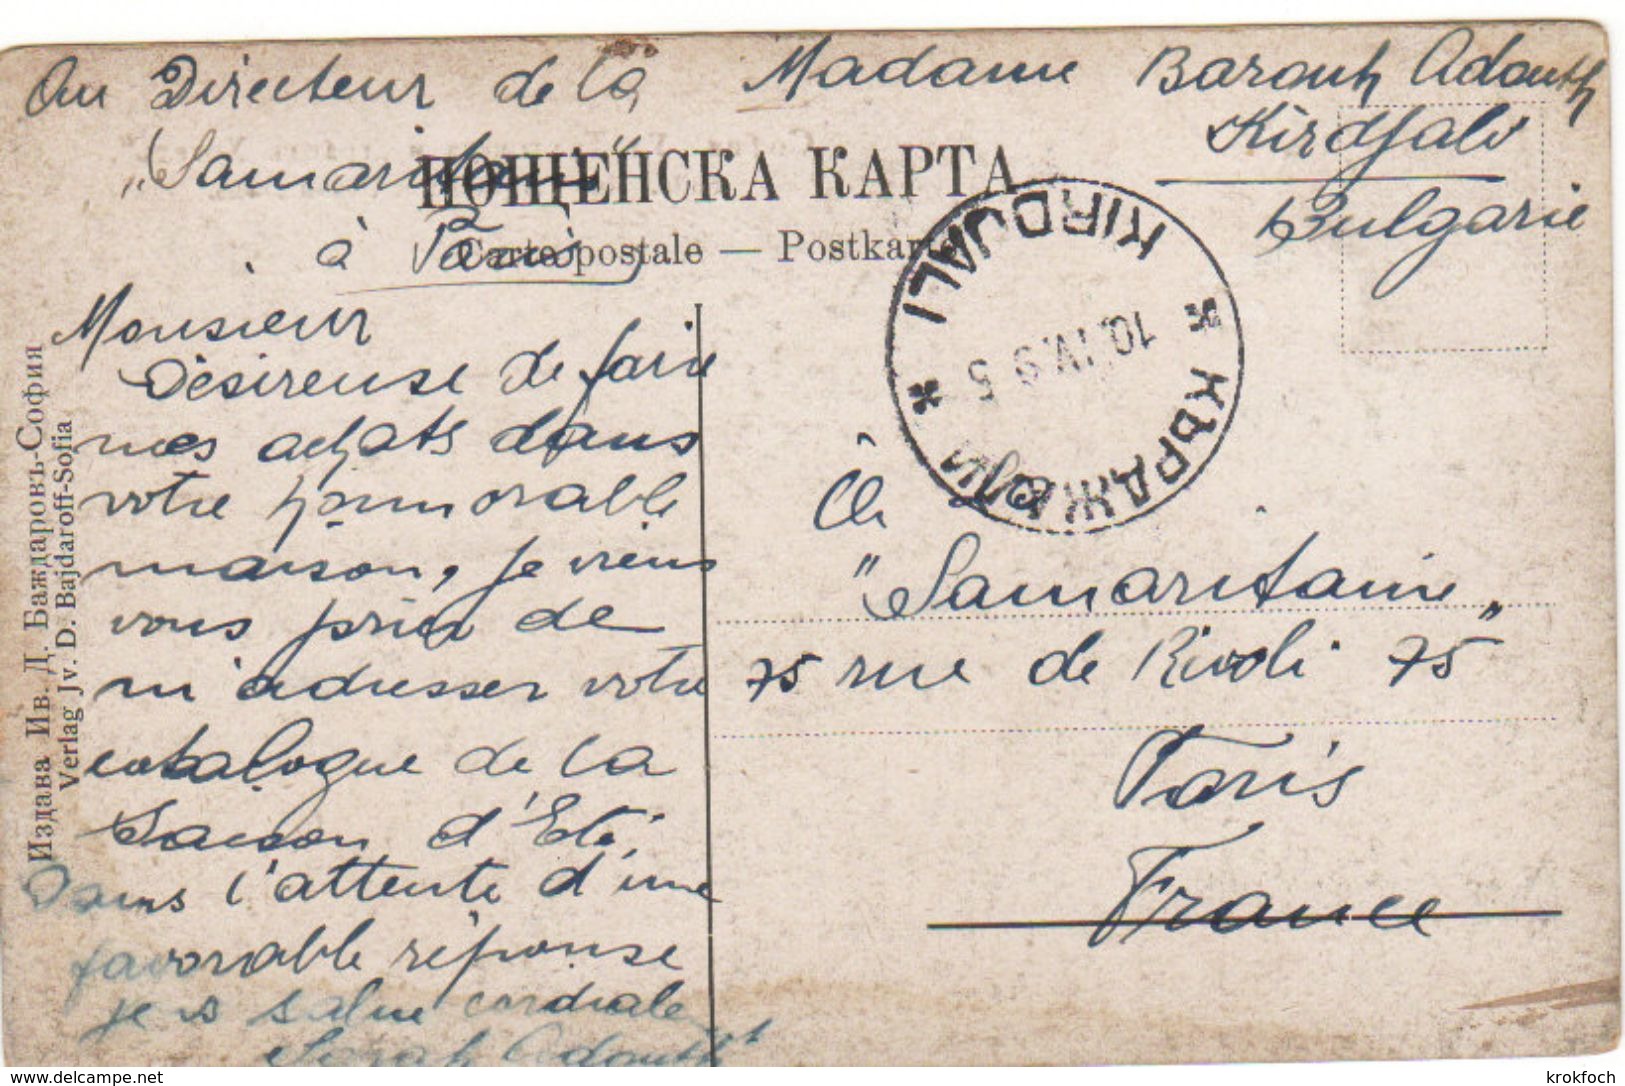 Au Directeur de la
„Samaritaine"
à Paris
Monsieur
Désireuse de faire
mes achats dans
votre honnorable
maison, je viens
vous prier de
m'adresser votre
catalogue de la
Saison d'Eté.
Dans l'attente d'une
favorable réponse
je vs salue cordiale
Sarah Adouth
Madame Barouh Adouth
Kirdjali
Bulgarie
ПОЩЕНСКА КАРТА
Carte postale — Postkarte
KIRDJALI
* КЪРДЖАЛИ *
10.IV.9 5
À La
„Samaritaine"
75 rue de Rivoli 75
Paris
France
Издава Ив. Д. Баждаровъ-София
Verlag Jv. D. Bajdaroff-Sofia
krokfoch